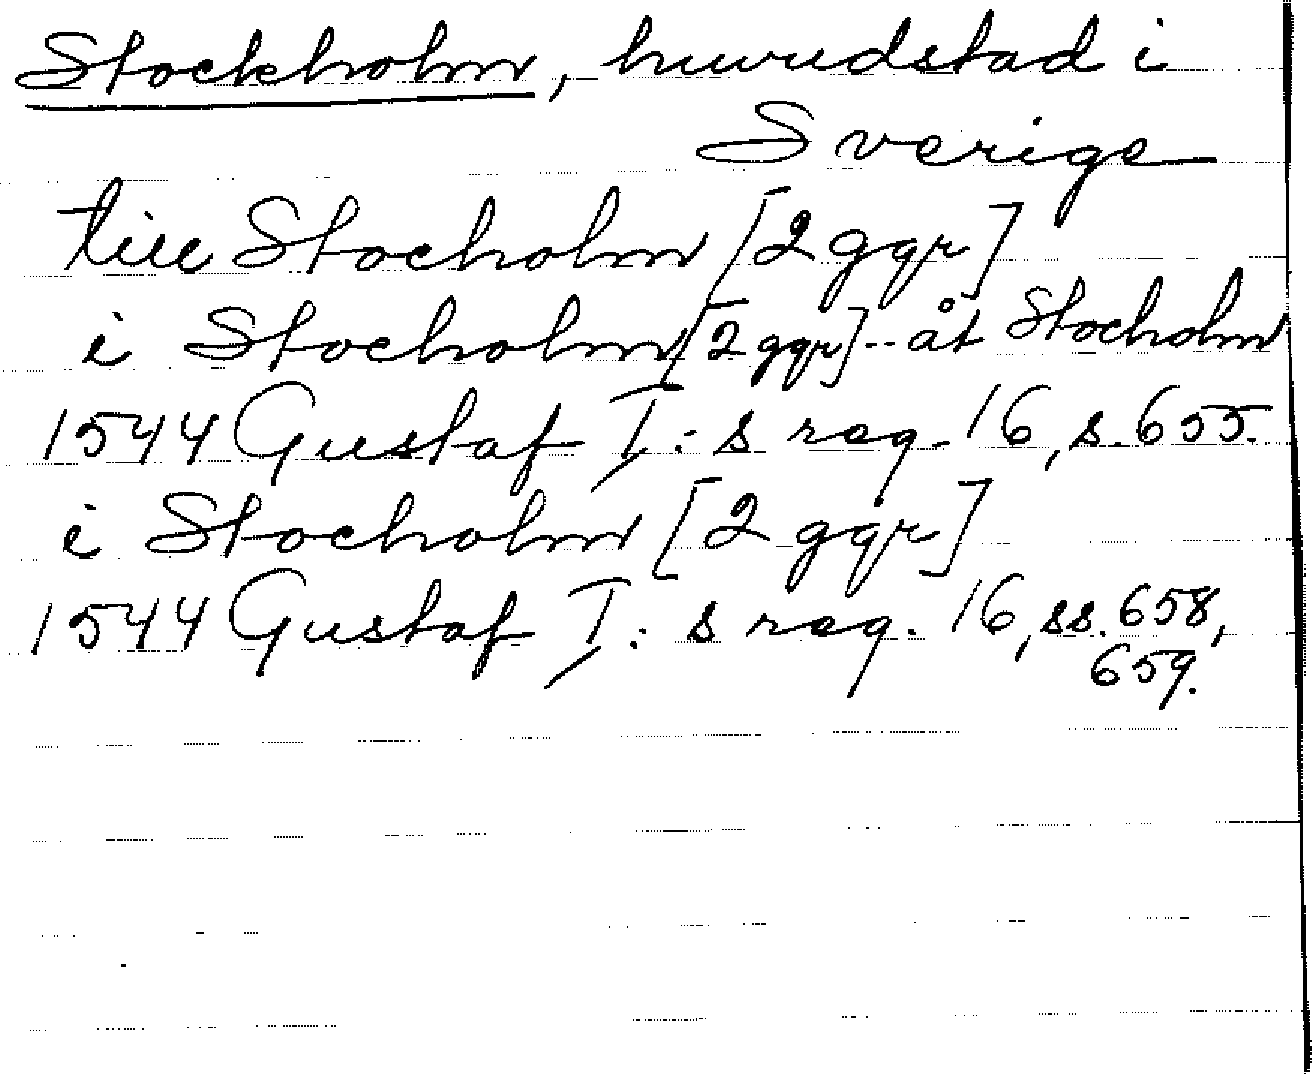 Stockholm, huvudstad i
Sverige
till Stocholm [2 ggr]
i Stocholm [2 ggr] -- åt Stocholm
1544 Gustaf I:s reg. 16, s. 655.
i Stocholm [2 ggr]
1544 Gustaf I:s reg. 16, ss. 658,
659.